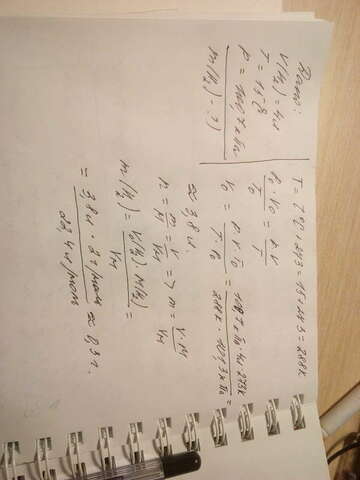 Дано:
V(H₂) = 4л
T = 15°C
P = 100,7 кПа
m(H₂) - ?
T = t°C + 273 = 15 + 273 = 288K
P₀ · V₀ / T₀ = P·V / T
V₀ = P·V·T₀ / T·P₀ = 100,7 кПа · 4л · 273K / 288K · 101,3 кПа =
≈ 3,8 л.
n = m/M = V/Vм => m = V·M / Vм
m(H₂) = V₀(H₂) · M(H₂) / Vм =
= 3,8 л · 2 г/моль / 22,4 л/моль ≈ 0,3 г.